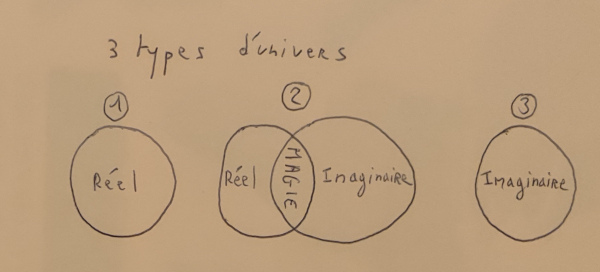 3 types d'univers
1
2
3
Réel
Réel
MAGIE
Imaginaire
Imaginaire